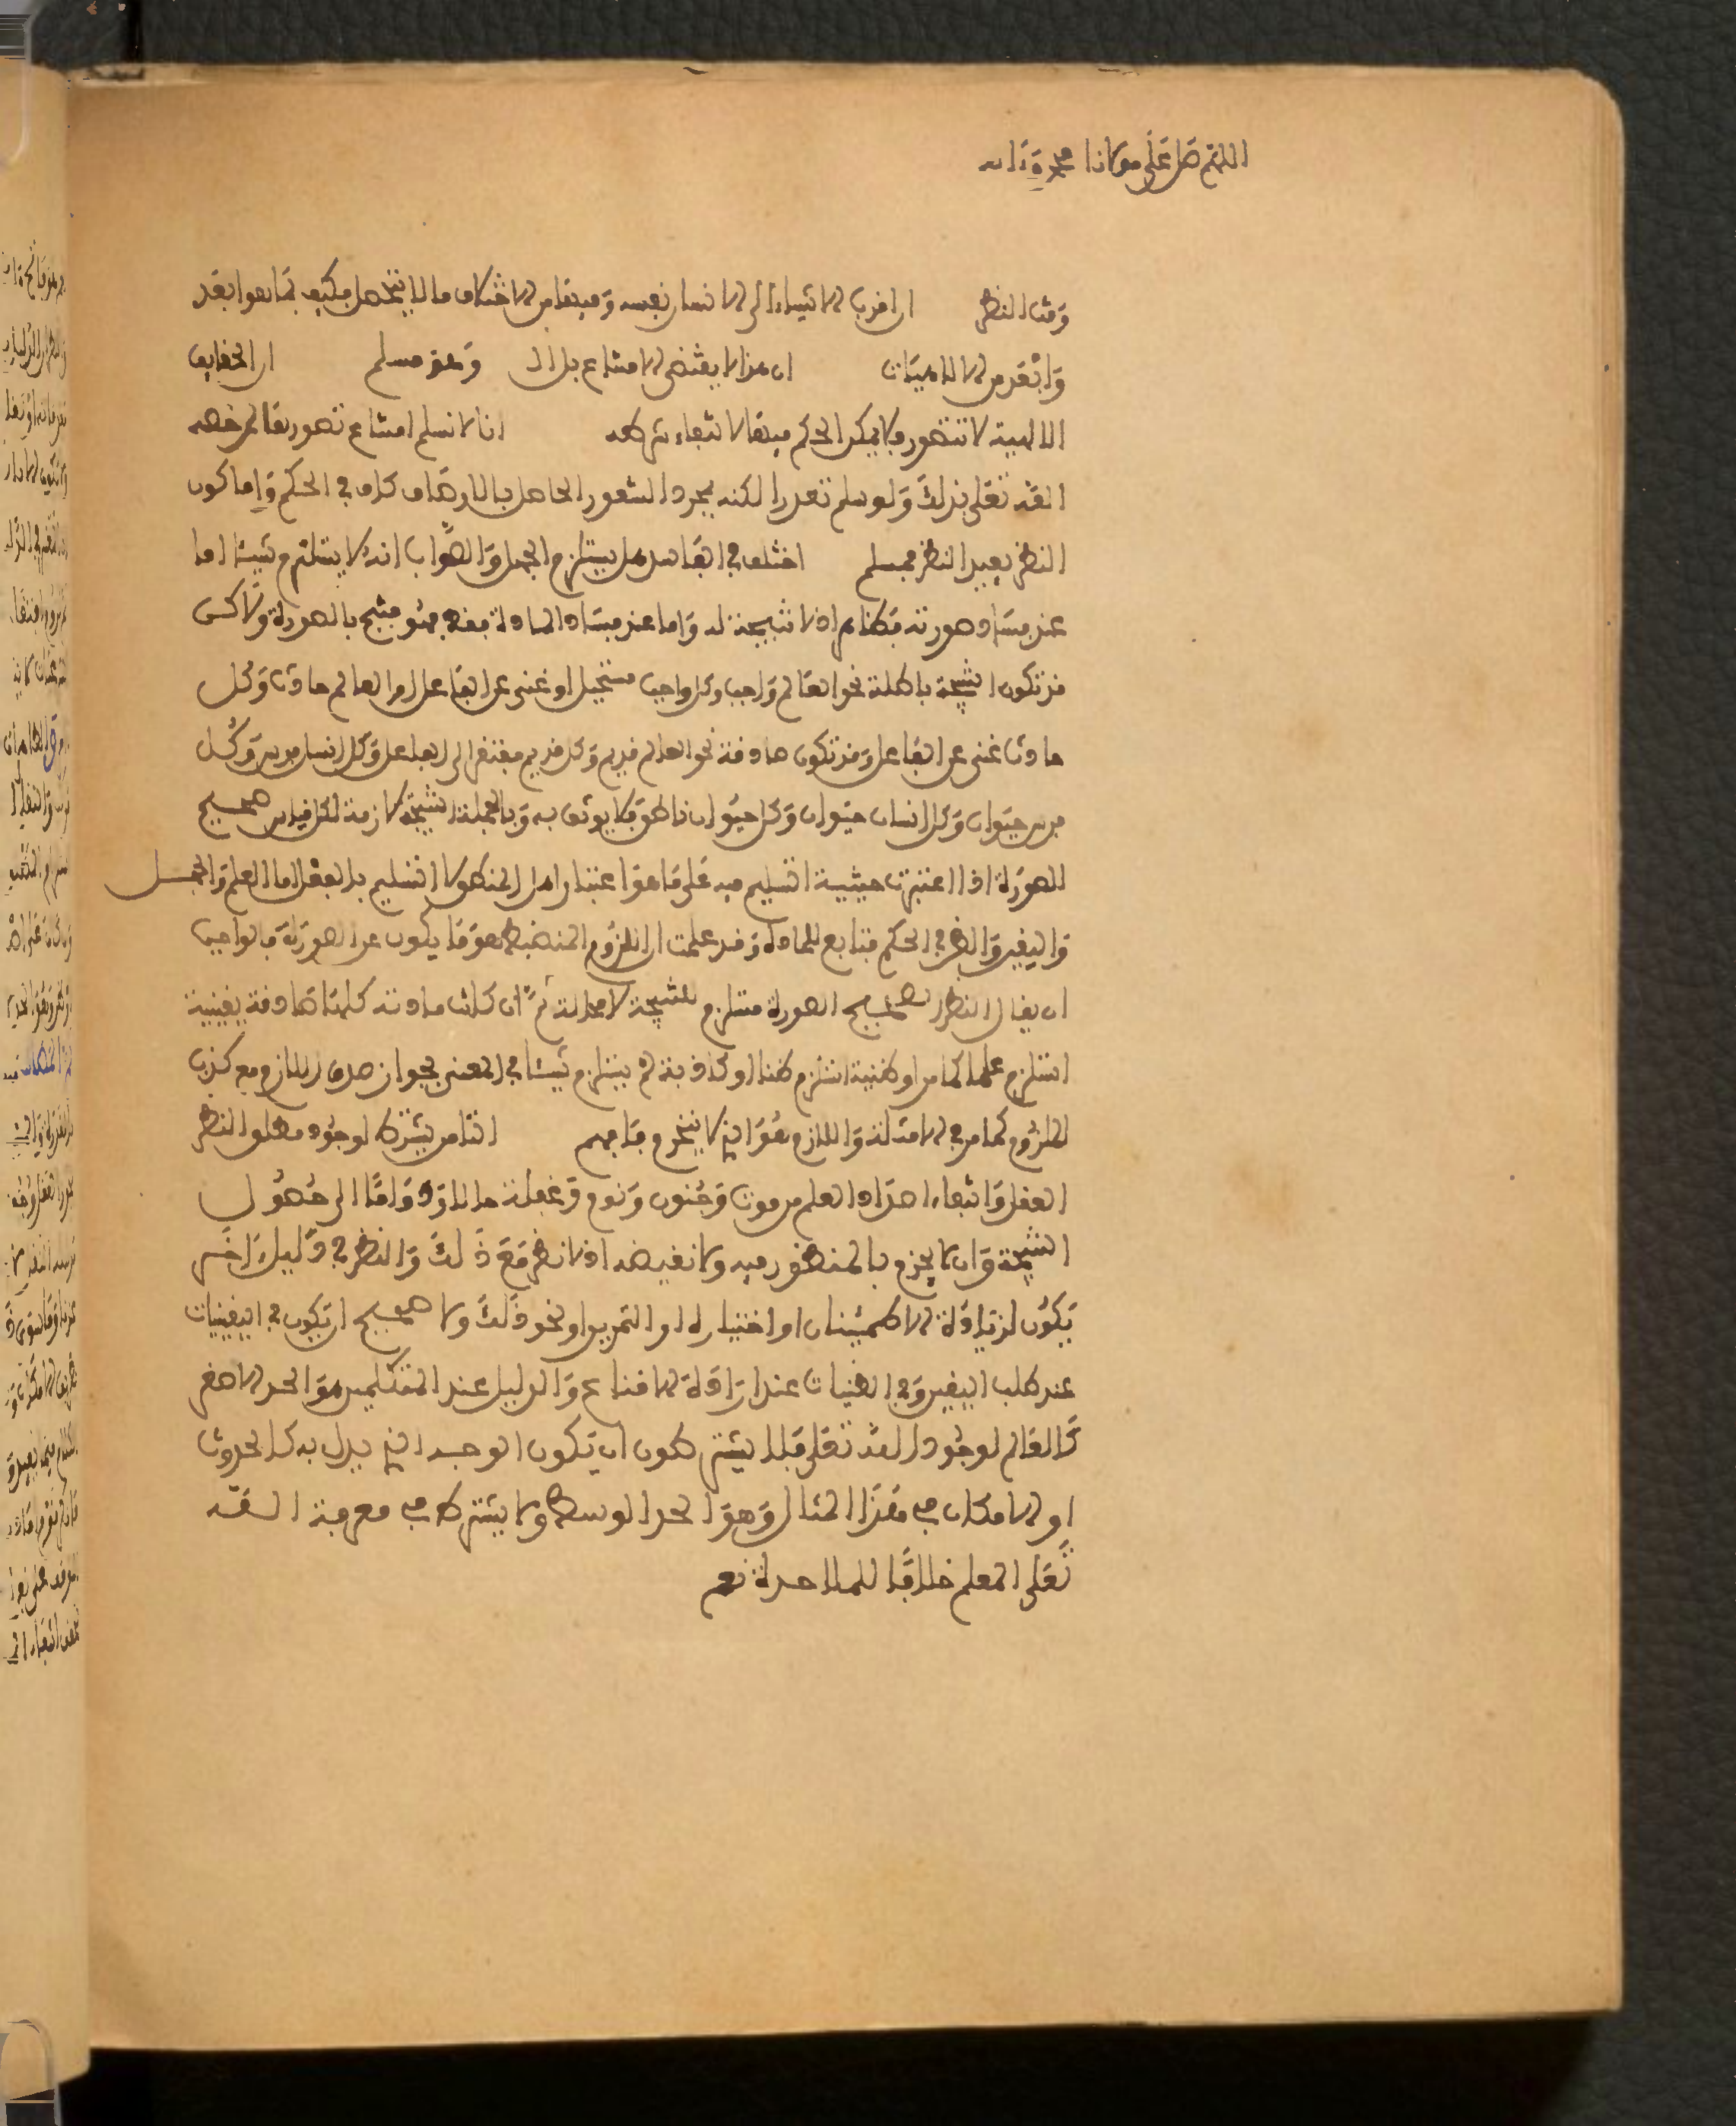 اللهم صل على مولانا محمد وءاله
ومن النظر ان اقرب الاشياء الى الانسان نفسه وفيها من الاختلاف ما لا ينحصل فكيف بما هو ابعد
وابعد من الالاهيات ان هذا لا يقتضي الامتناع بل ال وهو مسلم ان الحقايق
الالهية لا تتصور ولا يمكن الحكم فيها لانتفاء شرطه انا لا نسلم امتناع تصورها لمن خصه
الله تعلى بذلك ولو سلم تعذر الكنه فمجرد الشعور الحاصل بالاوصاف كاف في الحكم واما كون
النظر يفيد النظر فمسلم اختلف في الفاسد هل يستلزم الجهل والصواب انه لا يستلزم شيئا اما
عند فساد صورته فظاهر اذ لا نتيجة له واما عند فساد المادة فقط فهو منتج بالصورة ولاكن
قد تكون النتيجة باطلة نحو العالم واجب وكل واجب مستحيل او غني عن الفاعل او العالم حادث وكل
حادث غني عن الفاعل وقد تكون صادقة نحو العالم قديم وكل قديم مفتقر الى الفاعل وكل انسان فرس وكل
فرس حيوان وكل انسان حيوان وكل حيوان ناطق فلا يوثق به وبالجملة النتيجة لازمة لكل قياس صحيح
الصورة اذا اعتبرت حيثية التسليم فيه على ما هو اعتبار اهل المنطق لا التسليم بالفعل اما العلم والجهل
واليقين والظن في الحكم فتابع للمادة وقد علمت ان اللزوم المنضبط هو ما يكون عن الصورة فالواجب
ان يقال النظر الصحيح الصورة مستلزم للنتيجة لا محالة ثم ان كانت مادته كلها صادقة يقينية
استلزم علما كما مر او ظنية استلزم ظنا او كاذبة لم يستلزم شيئا في المعنى لجواز صدق اللازم مع كذب
الملزوم كما مر في الامثلة واللازم هو الذي لا ينخرم فافهم الثامن يشترط لوجود مطلق النظر
العقل وانتفاء اضداد العلم من موت وجنون ونوم وغفلة حالا زواد واما الى حصول
النتيجة وان لا يجزم بالمنظور فيه ولا نقيضه اذ لا نظر مع ذلك والنظر في دليل ءاخر
يكون لزيادة الاطمئنان او اختباره او التمرين او نحو ذلك ولا صحيح ان يكون في اليقينيات
عند طلب اليقين وفي الظنيات عند ارادة الاقناع والدليل عند المتكلمين هو الحد الاصغر
كالعالم لوجود الله تعلى فلا يشترط كون ان يكون الوجه الذي يدل به كالحدوث
او الامكان في هذا المثال وهو الحد الوسط ولا يشترط في معرفة الله
تعلى المعلم خلافا للملاحدة نعم